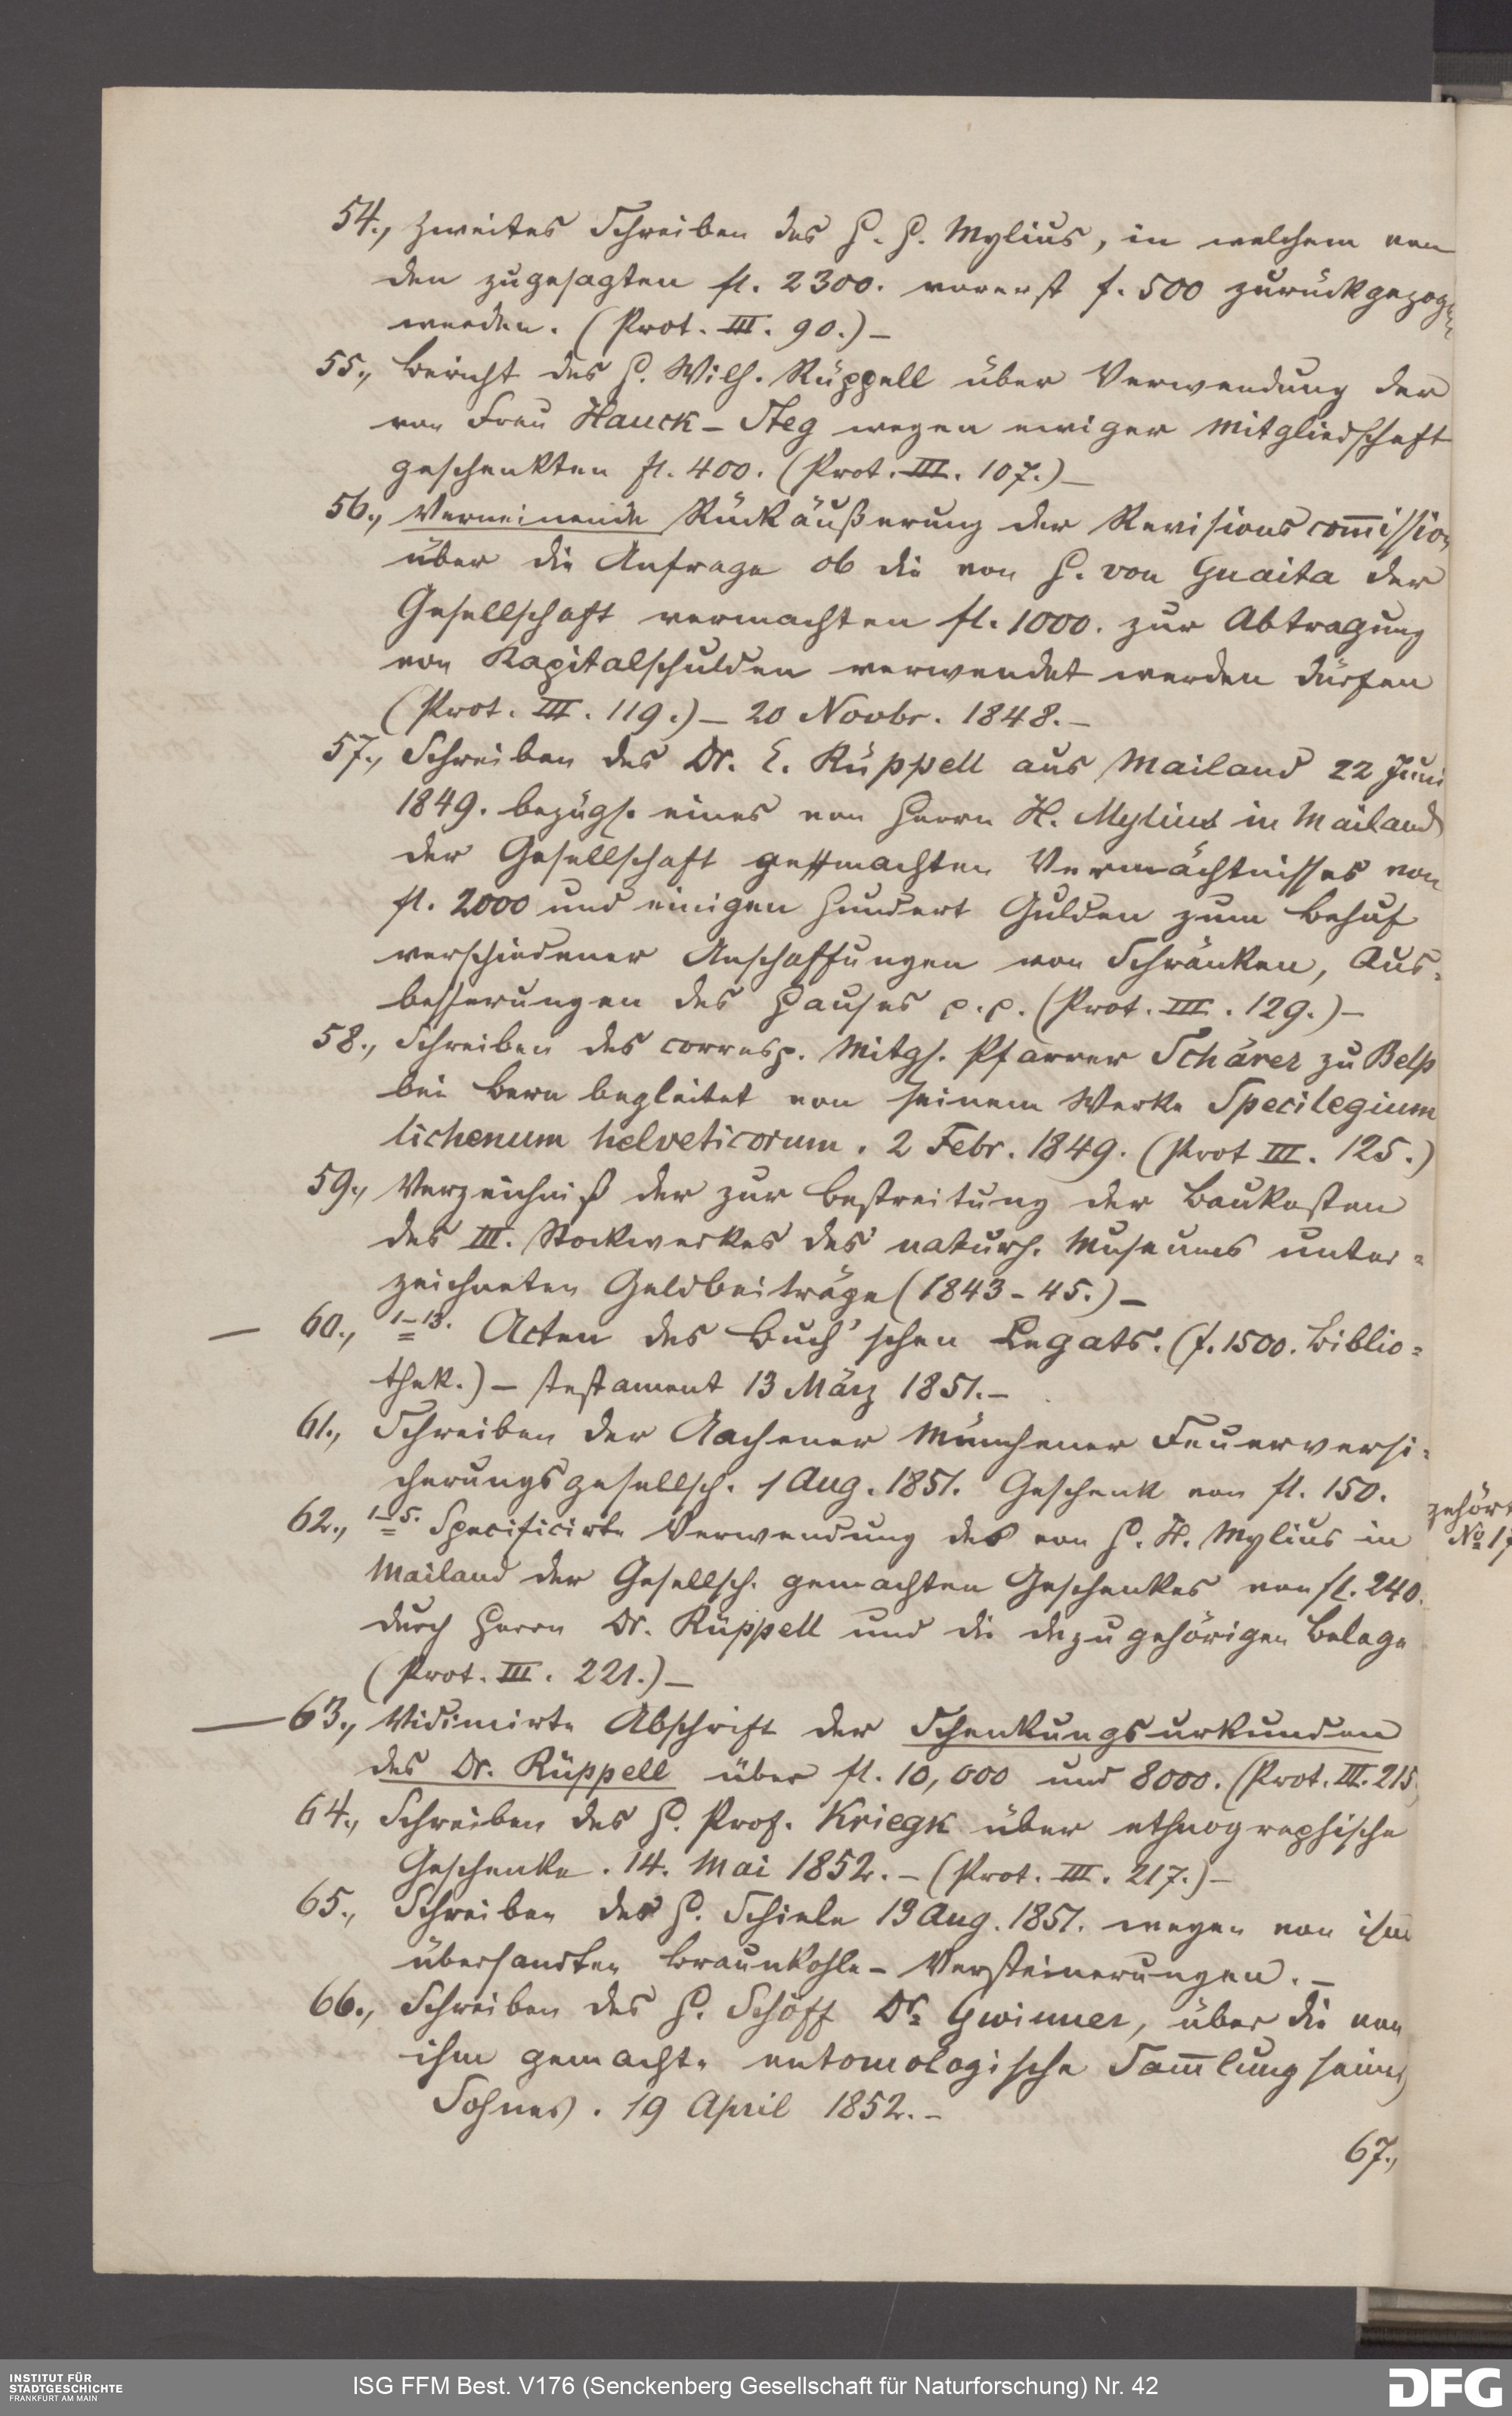 54., Zweites Schreiben des H. H. Mylius, in welchem von
den zugesagten fl. 2300. vorerst f. 500 zurückgezogen
werden. (Prot. III. 90.) –
55., Bericht des H. Wilh. Rüppell über Verwendung der
von Frau Hauck-Steg wegen ewiger Mitgliedschaft
geschenkten fl. 400. (Prot. III. 107.) –
56., Verneinende Rückäußerung der Revisionscom̅ission
über die Anfrage ob die von H. von Guaita der
Gesellschaft vermachten fl. 1000. zur Abtragung
von Kapitalschulden verwendet werden dürfen
(Prot. III. 119.) – 20 Novbr. 1848. –
57., Schreiben des Dr. E. Rüppell aus Mailand 22 Juni
1849. bezügl. eines von Herrn H. Mylius in Mailand
der Gesellschaft gemachten Vermächtnisses von
fl. 2000 und einigen Hundert Gulden zum Behuf
verschiedener Anschaffungen von Schränken, Aus=
besserungen des Hauses p.p. (Prot. III. 129.) –
58., Schreiben des corresp. Mitgl. Pfarrer Schärer zu Belp
bei Bern begleitet von seinem Werke Specilegium
lichenum helveticorum. 2 Febr. 1849. (Prot III. 125.)
59., Verzeichniß der zur Bestreitung der Baukosten
des III. Stockwerkes des naturh. Museums unter=
zeichneten Geldbeiträge (1843-45.) –
— 60., 1-13. Acten des Buch'schen Legats. (f. 1500. Biblio=
thek.) – Testament 13 März 1851. –
61., Schreiben der Aachener Münchener Feuerversi=
cherungsgesellsch. 1 Aug. 1851. Geschenk von fl. 150.
62., 1-5. Specificirte Verwendung des von H. H. Mylius in
Mailand der Gesellsch. gemachten Geschenkes von fl. 240.
durch Herrn Dr. Rüppell und die dazu gehörigen Belege
(Prot. III. 221.) –
— 63., Vidimirte Abschrift der Schenkungsurkunden
des Dr. Rüppell über fl. 10,000 und 8000. (Prot. III. 215
64., Schreiben des H. Prof. Kriegk über ethnographische
Geschenke. 14. Mai 1852. – (Prot. III. 217.) –
65., Schreiben des H. Schiele 13 Aug. 1851. wegen von ihm
übersandten Braunkohle-Versteinerungen. –
66., Schreiben des H. Schöff Dr. Gwinner, über die von
ihm gemachte entomologische Sam̅lung seines
Sohnes. 19 April 1852. –
67.,
gehört
No 17
INSTITUT FÜR
STADTGESCHICHTE
FRANKFURT AM MAIN
ISG FFM Best. V176 (Senckenberg Gesellschaft für Naturforschung) Nr. 42
DFG